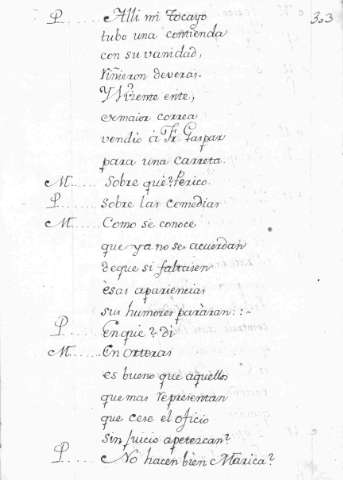 303
P...... Alli mi tocayo
tubo una contienda
con su vanidad,
riñieron deveras.
Y
ex maior correa
vendio á Fr. Gaspar
para una carreta.
M...... Sobre què? Perico.
P...... Sobre las comedias
M...... Como se conoce
que ya no se acuerdan
deque si faltasen
esas apariencias
sus humores paràran : : -
P...... En què? di
M...... En Orteras
es bueno que aquellos
que mas representan
que cese el oficio
sin juicio apetezcan?
P...... No hacen bien Marica?